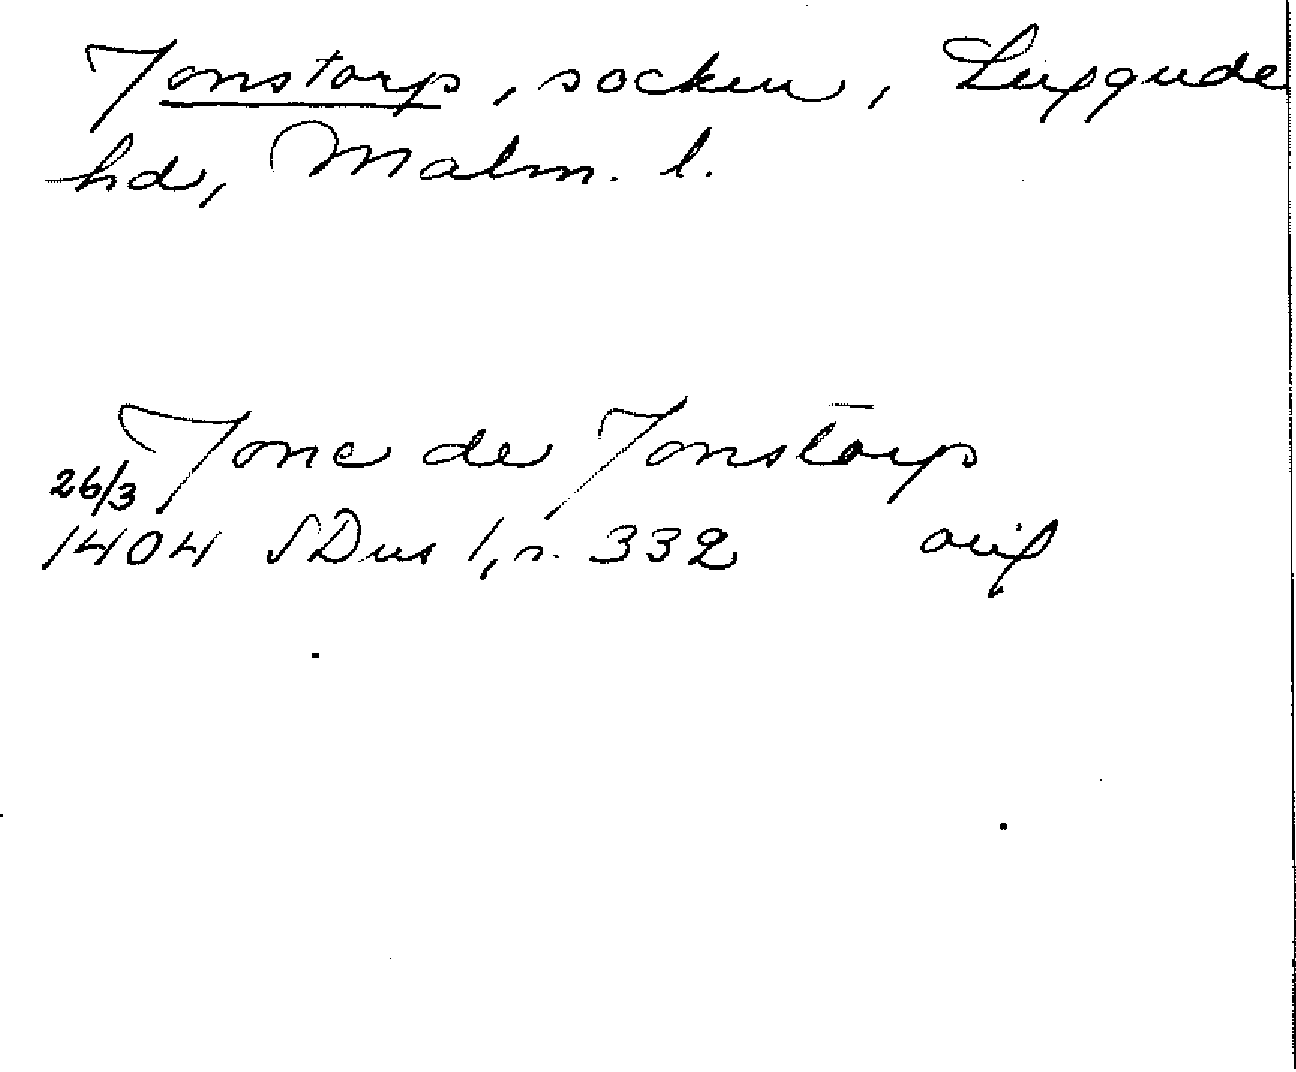 Jonstorp, socken, Luggude
hd, Malm. l.
Jone de Jonstorp
26/3
1404 SDns 1, n. 332 avs